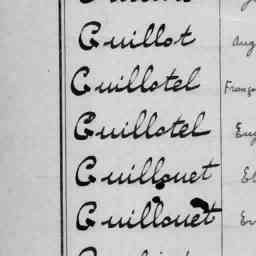 Guillot Aug
Guillotel Franço
Guillotel Eug
Guillouet
Guillouet